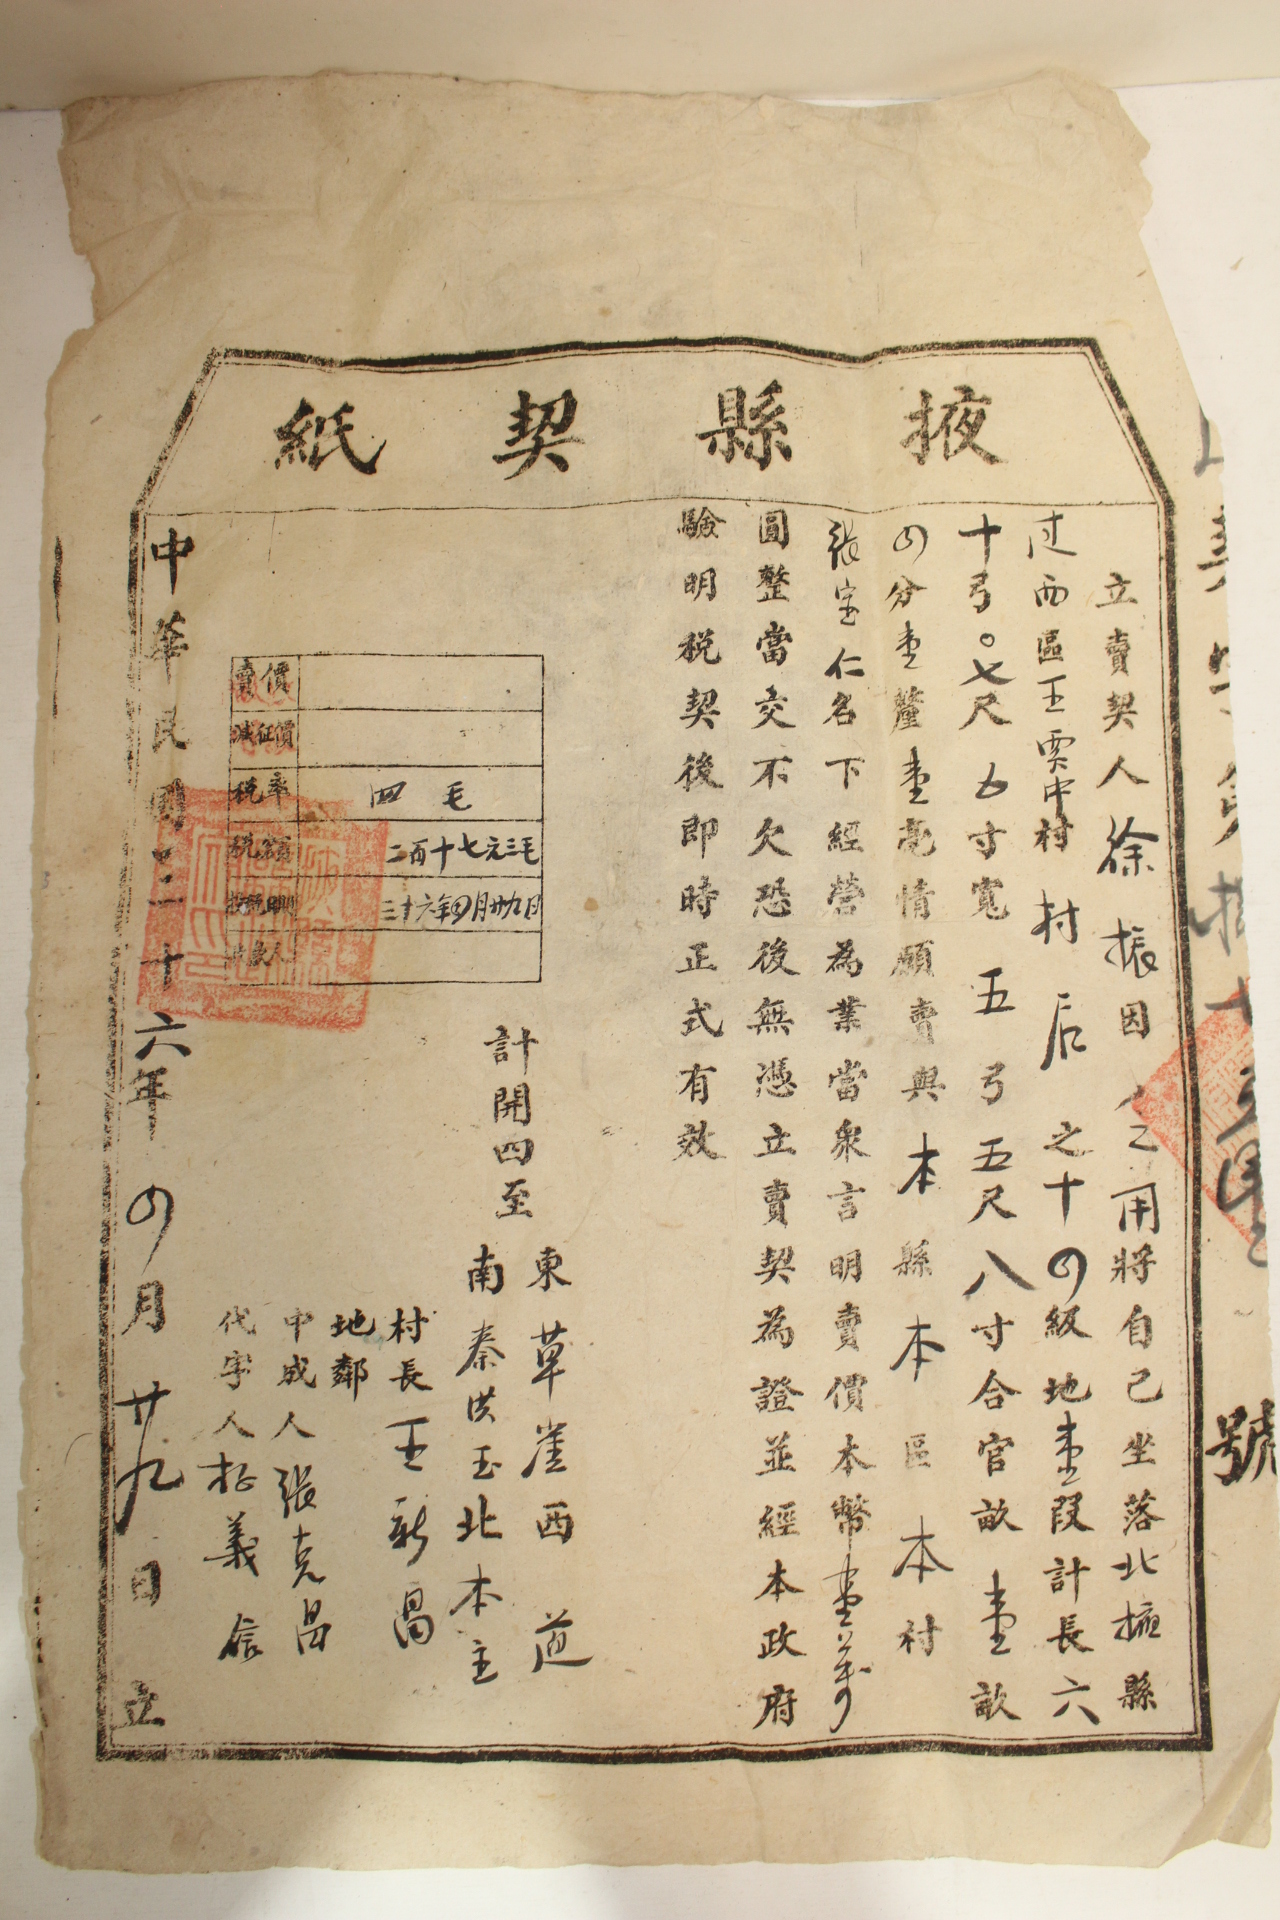 掖縣契紙
立賣契人徐振因乏用將自己坐落北掖縣
过西區王賈中村村后之十四級地壹段計長六
十弓〇七尺五寸寬五弓五尺八寸合官畝壹畝
四分壹釐壹毫情願賣與本縣本區本村
張宝仁名下經營為業當眾言明賣價本幣壹萬
圓整當交不欠恐後無憑立賣契為證並經本政府
驗明税契後即時正式有效
計開四至
東草崖西道
南秦洪玉北本主
村長王新昌
地鄰
中成人張克昌
代字人義信
賣價
減征價
税率 四毛
税額 二百十七元三毛
三十六年四月廿九日
中華民國三十六年四月廿九日立
號